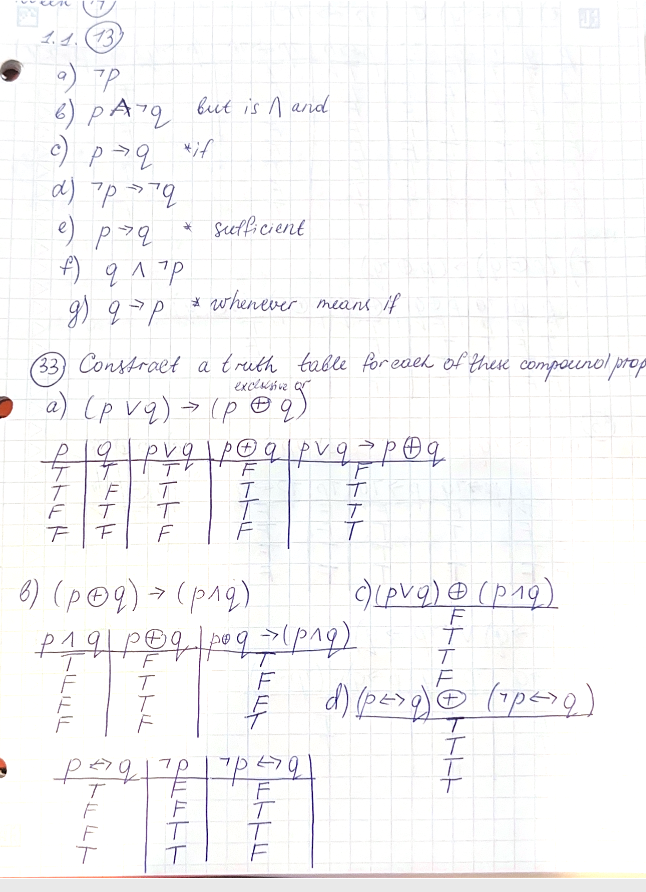 1.1. (13)
a) ¬p
b) p ∧ ¬q but is ∧ and
c) p → q *if
d) ¬p → ¬q
e) p → q * sufficient
f) q ∧ ¬p
g) q → p * whenever means if
(33) Constract a truth table for each of these compound prop
exclusive or
a) (p ∨ q) → (p ⊕ q)
p | q | p ∨ q | p ⊕ q | p ∨ q → p ⊕ q
T | T | T | F | F
T | F | T | T | T
F | T | T | T | T
F | F | F | F | T
b) (p ⊕ q) → (p ∧ q)
p ∧ q | p ⊕ q | p ⊕ q → (p ∧ q)
T | F | T
F | T | F
F | T | F
F | F | T
c) (p ∨ q) ⊕ (p ∧ q)
F
T
T
F
d) (p ↔ q) ⊕ (¬p ↔ q)
T
T
T
T
p ↔ q | ¬p | ¬p ↔ q
T | F | F
F | F | T
F | T | T
T | T | F